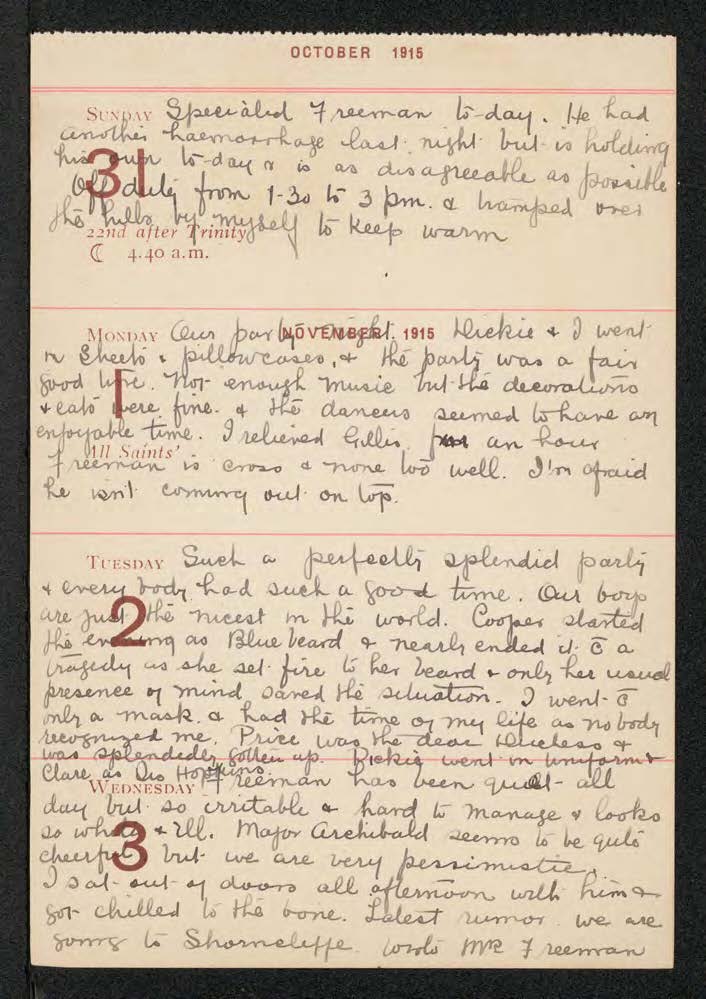 OCTOBER 1915
SUNDAY Specialed Freeman to-day. He had
another haemorrhage last night but is holding
his own to-day & is as disagreeable as possible
31
Off duty from 1-30 to 3 pm. & tramped over
the hills by myself to keep warm
22nd after Trinity
☾ 4.40 a.m.
NOVEMBER 1915
MONDAY Our party night. Dickie & I went
in sheets & pillowcases, & the party was a fair
good time. Not enough music but the decorations
1
& eats were fine. & the dancers seemed to have an
enjoyable time. I relieved Gillis for an hour
All Saints'
Freeman is cross & none too well. I'm afraid
he isn't coming out on top.
TUESDAY Such a perfectly splendid party
& every body had such a good time. Our boys
2
are just the nicest in the world. Cooper started
the evening as Blue beard & nearly ended it c̄ a
tragedy as she set fire to her beard & only her usual
presence of mind saved the situation. I went c̄
only a mask & had the time of my life as nobody
recognized me. Price was the dear Duchess &
was splendidly gotten up. Dickie went in uniform &
Clare as Dis Hopkins.
WEDNESDAY Freeman has been quiet all
day but so irritable & hard to manage & looks
so white & ill. Major Archibald seems to be quite
3
cheerful but we are very pessimistic.
I sat out of doors all afternoon with him &
got chilled to the bone. Latest rumor we are
going to Shorncliffe. Wrote Mr Freeman